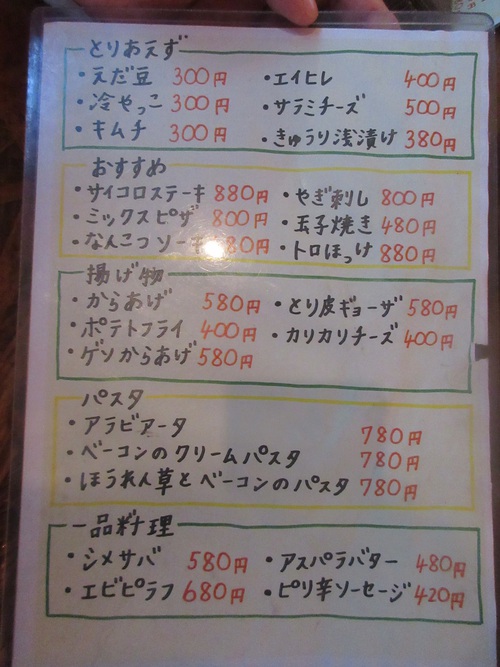 とりあえず
・えだ豆 300円 ・エイヒレ 400円
・冷やっこ 300円 ・サラミチーズ 500円
・キムチ 300円 ・きゅうり浅漬け 380円
おすすめ
・サイコロステーキ 880円 ・やぎ刺し 800円
・ミックスピザ 800円 ・玉子焼き 480円
・なんこつソーキ 80円 ・トロほっけ 880円
揚げ物
・からあげ 580円 ・とり皮ギョーザ 580円
・ポテトフライ 400円 ・カリカリチーズ 400円
・ゲソからあげ 580円
パスタ
・アラビアータ 780円
・ベーコンのクリームパスタ 780円
・ほうれん草とベーコンのパスタ 780円
一品料理
・シメサバ 580円 ・アスパラバター 480円
・エビピラフ 680円 ・ピリ辛ソーセージ 420円